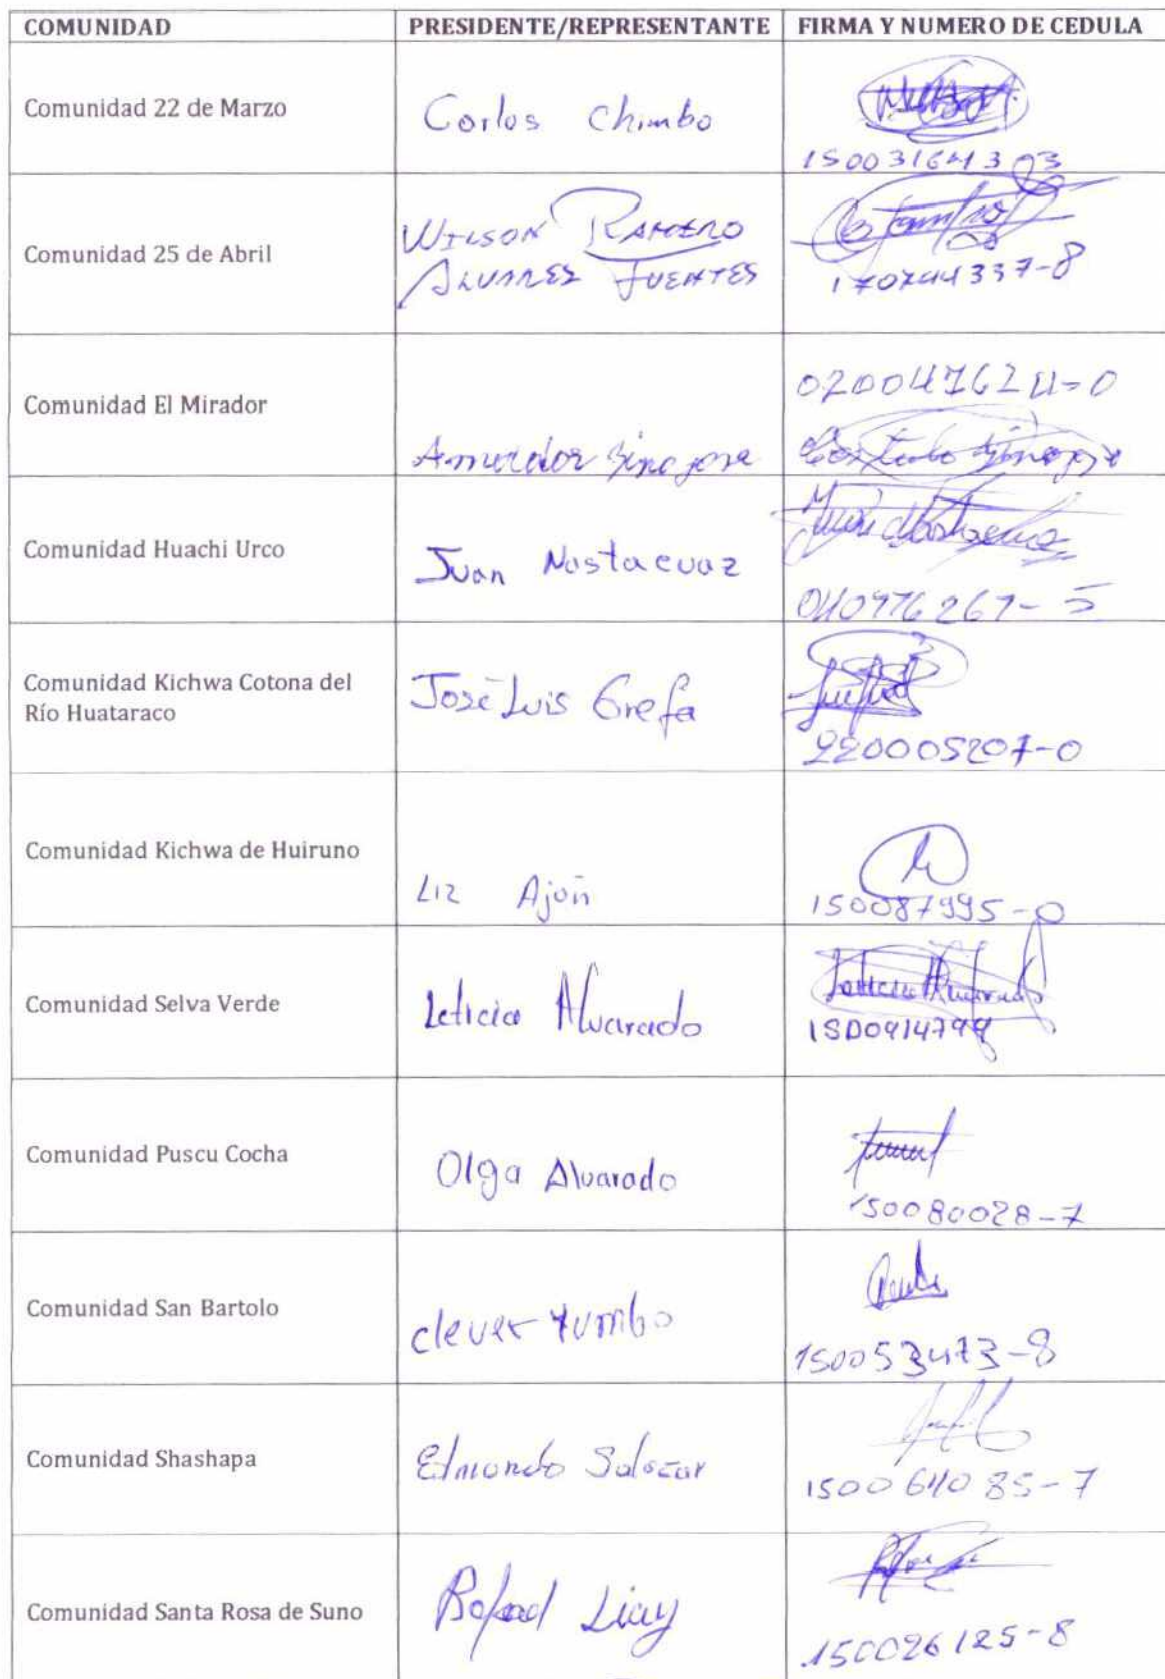 COMUNIDAD PRESIDENTE/REPRESENTANTE FIRMA Y NUMERO DE CEDULA
Comunidad 22 de Marzo
Carlos Chimbo
Comunidad 25 de Abril
WILSON RAMIRO
ALVARES FUENTES
170744337-8
Comunidad El Mirador
020047624-0
Comunidad Huachi Urco
Juan Nastacuaz
Comunidad Kichwa Cotona del
Río Huataraco
José Luis Grefa
220005207-0
Comunidad Kichwa de Huiruno
Liz Ajón
150087995-0
Comunidad Selva Verde
Leticia Alvarado
Leticia Alvarado
Comunidad Puscu Cocha
Olga Alvarado
150080028-7
Comunidad San Bartolo
clever Yumbo
150053473-8
Comunidad Shashapa
Edmundo Salazar
150064085-7
Comunidad Santa Rosa de Suno
Rafael Licuy
150026125-8